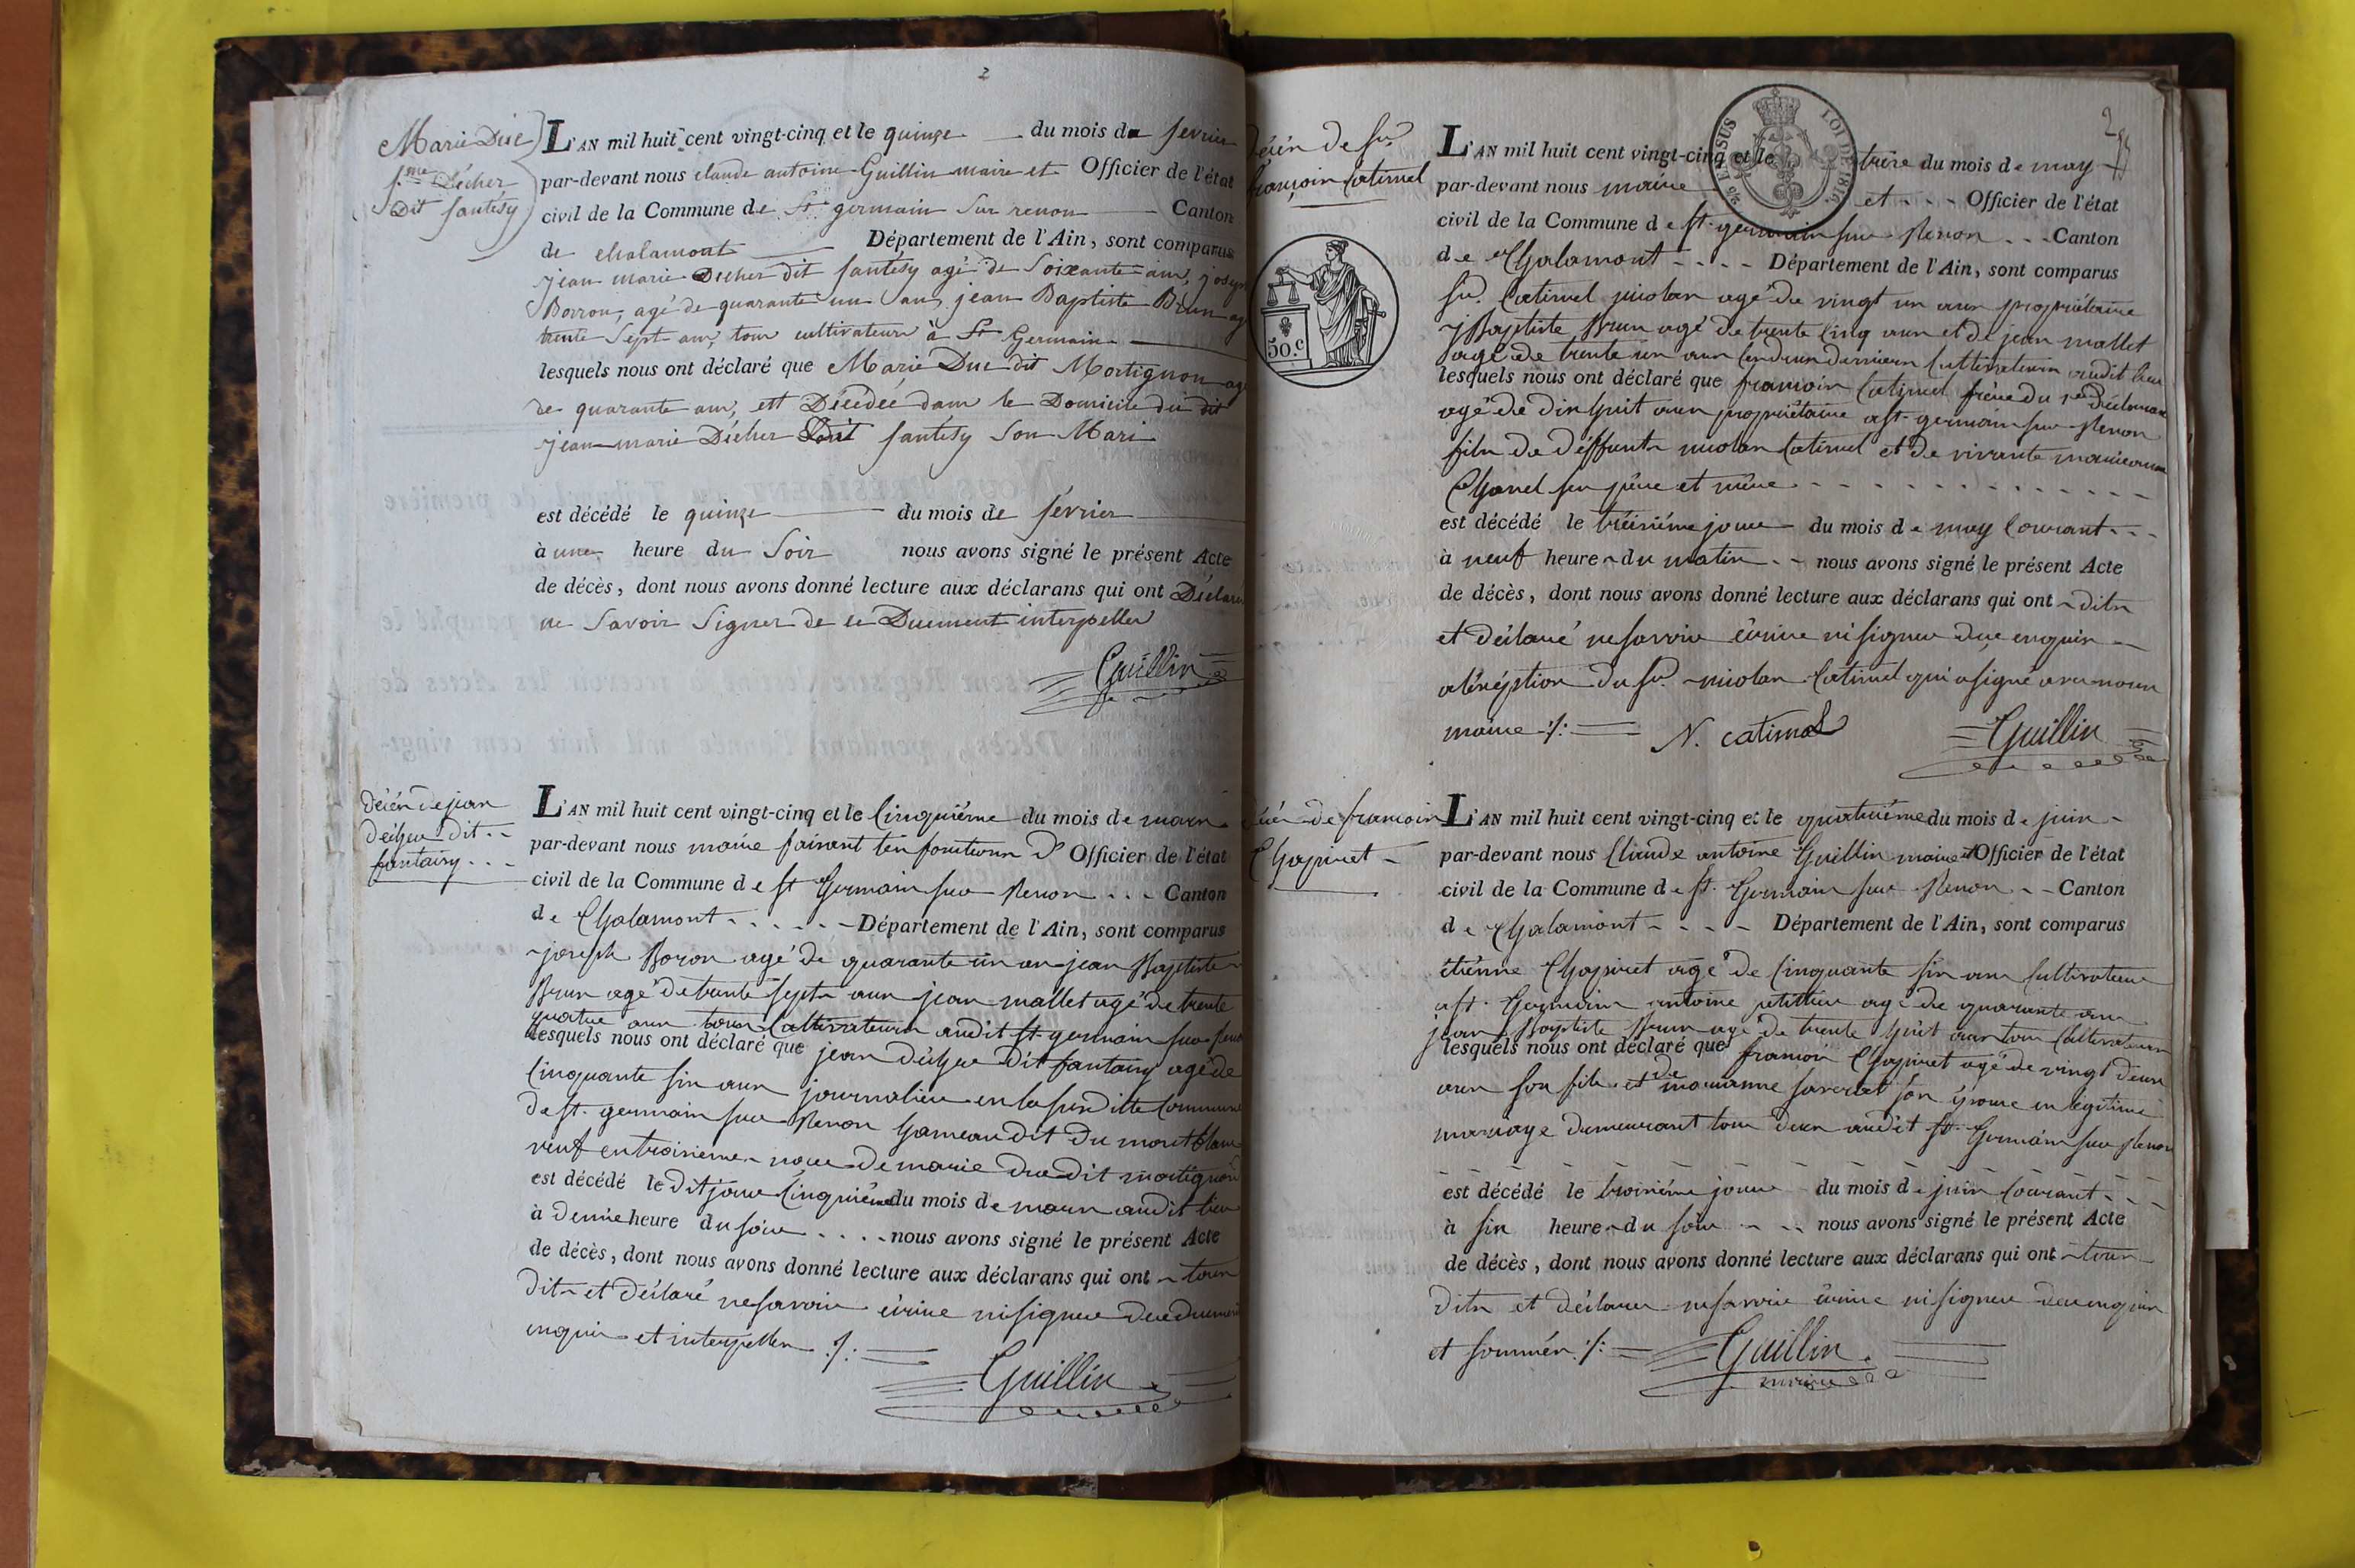 2
Marie Duc
f.me Décher
Dit fantesy
L'AN mil huit cent vingt-cinq et le quinze du mois de fevrier
par-devant nous claude antoine Guillin maire et Officier de l'état
civil de la Commune de St germain Sur renon Canton
de chalamont Département de l'Ain, sont comparus
jean marie Décher dit fantésy agé de Soixante ans, joseph
Borron, agé de quarante un ans, jean Baptiste Brun agé
trente Sept ans, tous cultivateurs à St Germain
lesquels nous ont déclaré que Marie Duc dit Mortignon agé
de quarante ans, est Décédée dans le Domicile du dit
jean-marie Décher Dit fantesy Son Mari
est décédé le quinze du mois de février
à une heure du Soir nous avons signé le présent Acte
de décès, dont nous avons donné lecture aux déclarans qui ont Déclaré
ne Savoir Signer de ce Duement interpellés
Guillin
décés de jean
décher dit
fantaisy
L'AN mil huit cent vingt-cinq et le Cinquiéme du mois de mars
par-devant nous maire faisant les fonctions d' Officier de l'état
civil de la Commune de st Germain sur Renon Canton
de Chalamont Département de l'Ain, sont comparus
joseph Boron agé de quarante un an jean Baptiste
Brun agé de trente sept ans jean mallet agé de trente
quatre ans tous Cultivateurs audit st germain sur
lesquels nous ont déclaré que jean décher dit fantaisy agé de
Cinquante six ans journalier en la susditte Commune
de st. germain sur Renon hameau dit du mont blanc
veuf en troisieme noce de marie duc dit mortignon
est décédé le dit jour Cinquiéme du mois de mars audit lieu
à demie heure du soir nous avons signé le présent Acte
de décès, dont nous avons donné lecture aux déclarans qui ont tous
dits et déclaré ne savoir écrire ni signer de ce duement
enquis et interpellés ./.
Guillin
décés de sr
françois Catimel
50.c
26 ET SUS LOI DE 1816
2
L'AN mil huit cent vingt-cinq et le treize du mois de may
par-devant nous maire et Officier de l'état
civil de la Commune de st germain sur Renon Canton
de Chalamont Département de l'Ain, sont comparus
sr. Catimel nicolas agé de vingt un ans propriétaire
jBaptiste Brun agé de trente cinq ans et de jean mallet
agé de trente un ans les deux derniers Cultivateurs audit lieu
lesquels nous ont déclaré que françois Catimel frère du 1er déclarant
agé de dix huit ans propriétaire a st. germain sur Renon
fils de déffunt nicolas Catimel et de vivante marieanne
Chanel ses père et mère
est décédé le tréiziéme jour du mois de may Courant
à neuf heures du matin nous avons signé le présent Acte
de décès, dont nous avons donné lecture aux déclarans qui ont dits
et déclaré ne savoir écrire ni signer de ce enquis
a l'éxéption du sr. nicolas Catimel qui a signé avec nous
maire ./. N. catimel Guillin
décés de françois
Chapuret
L'AN mil huit cent vingt-cinq et le quatriéme du mois de juin
par-devant nous Claude antoine Guillin maire et Officier de l'état
civil de la Commune de st. Germain sur Renon Canton
de Chalamont Département de l'Ain, sont comparus
étiénne Chapuret agé de Cinquante six ans Cultivateur
a st. Germain antoine agé de quarante ans
jean Baptiste Brun agé de trente huit ans tous Cultivateurs
lesquels nous ont déclaré que françois Chapuret agé de vingt deux
ans son fils et de marianne son épouse en légitime
mariage demeurant tous deux audit st. Germain sur Renon
est décédé le troisiéme jour du mois de juin Courant
à six heures du soir nous avons signé le présent Acte
de décès, dont nous avons donné lecture aux déclarans qui ont tous
dits et déclarer ne savoir écrire ni signer de ce enquis
et sommés ./. Guillin
maire